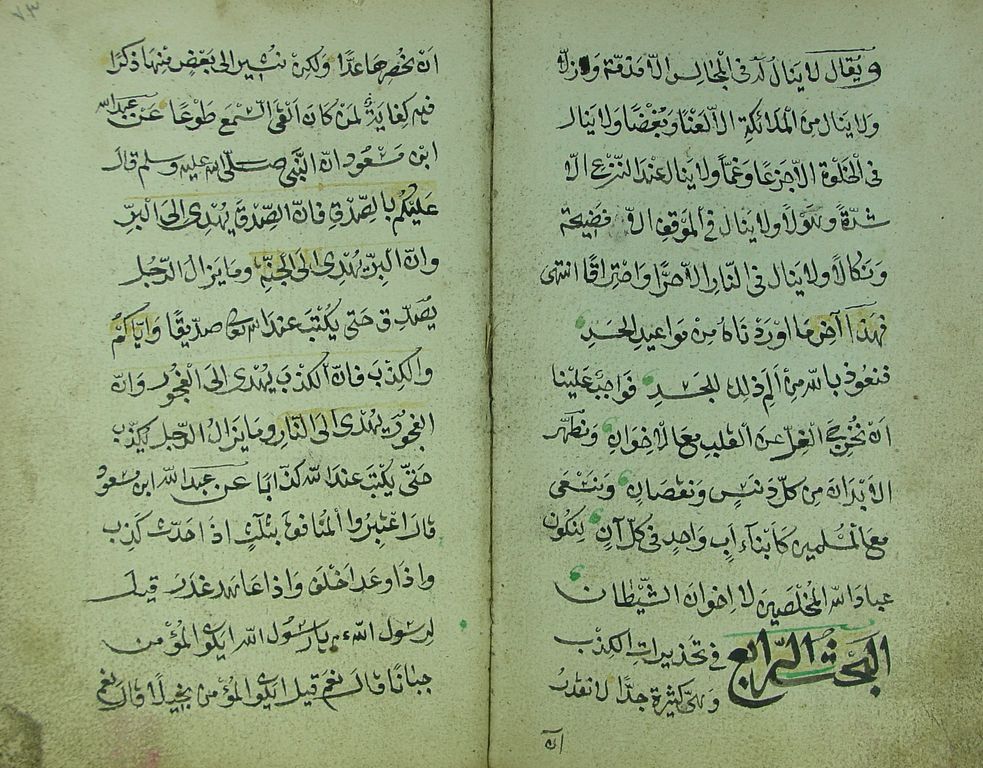 ويقال لا ينال له فى المجالس الا مذمة وذلا
ولا ينال من الملائكة الا لعنا وبغضا ولا ينال
فى الخلوة الا جزعا وغما ولا ينال عند النزع الا
شدة وهولا ولا ينال فى الموقف الا فضيحة
ونكالا ولا ينال فى النار الا حرا واحتراقا انتهى
فهذا آخر ما اوردناه من مواعيد الحسد
فنعوذ بالله من الم ذلك الجسد فواجب علينا
ان نخرج الغل عن القلب مع الاخوان ونطهر
الابدان من كل دنس ونقصان ونسعى
مع المسلمين كابناء اب واحد فى كل آن لنكون
عباد الله المخلصين لا اخوان الشيطان
البحث الرابع فى تحذيرات الكذب
وهى كثيرة جدا لا نقدر
ان
٧٣
ان نحصرها عدا ولكن نشير الى بعض منها ذكرا
فيه كفاية لمن كان القى السمع طوعا عن عبد الله
ابن مسعود ان النبى صلى الله عليه وسلم قال
عليكم بالصدق فان الصدق يهدى الى البر
وان البر يهدى الى الجنة وما يزال الرجل
يصدق حتى يكتب عند الله تعا صديقا واياكم
والكذب فان الكذب يهدى الى الفجور وان
الفجور يهدى الى النار وما يزال الرجل يكذب
حتى يكتب عند الله كذابا عن عبد الله ابن مسعود
قال اعتبروا المنافق بثلث اذا حدث كذب
واذا وعد اخلف واذا عاهد غدر قيل
لرسول الله يا رسول الله ايكون المؤمن
جبانا قال نعم قيل ايكون المؤمن بخيلا قال نعم